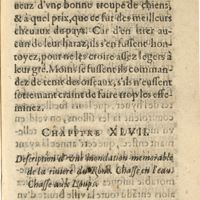 neur d'vne bonne troupe de chiens,
& à quel prix, que ce fut des meilleurs
cheuaux du pays. Car d'en tirer au-
cuns de leur haraz, ils en fussent hon-
toyez, pour ne les croire assez legers à
leur gré. Moins se fussent ils comman-
dez de tenir des oiseaux, s'ils n'eussent
fotement craint de faire trop les effe-
minez.
CHAPITRE XLVII.
Description d'vne inondation memorable
de la riuiere du Rosne. Chasse en l'eau.
Chasse aux Loups.